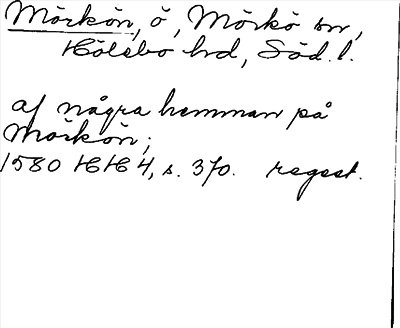 Mörkön, ö, Mörkö sn,
Hölebo hd, Söd. l.
af några hemman på
Mörkön;
1580 HH 4, s. 370. regest.